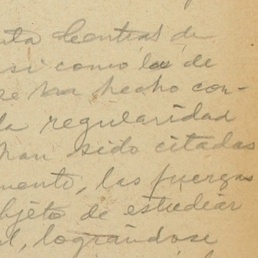 nta Contras de
si como la de
se ha hecho con-
la regularidad
han sido citadas
mento, las fuerzas
bjeto de estudiar
l, lográndose